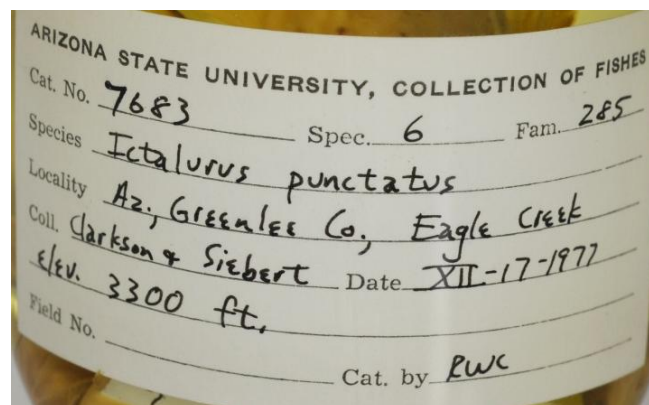 ARIZONA STATE UNIVERSITY, COLLECTION OF FISHES
Cat. No. 7683 Spec. 6 Fam. 285
Species Ictalurus punctatus
Locality Az., Greenlee Co., Eagle Creek
Coll. Clarkson & Siebert Date XII-17-1977
elev. 3300 ft.
Field No.
Cat. by RWC